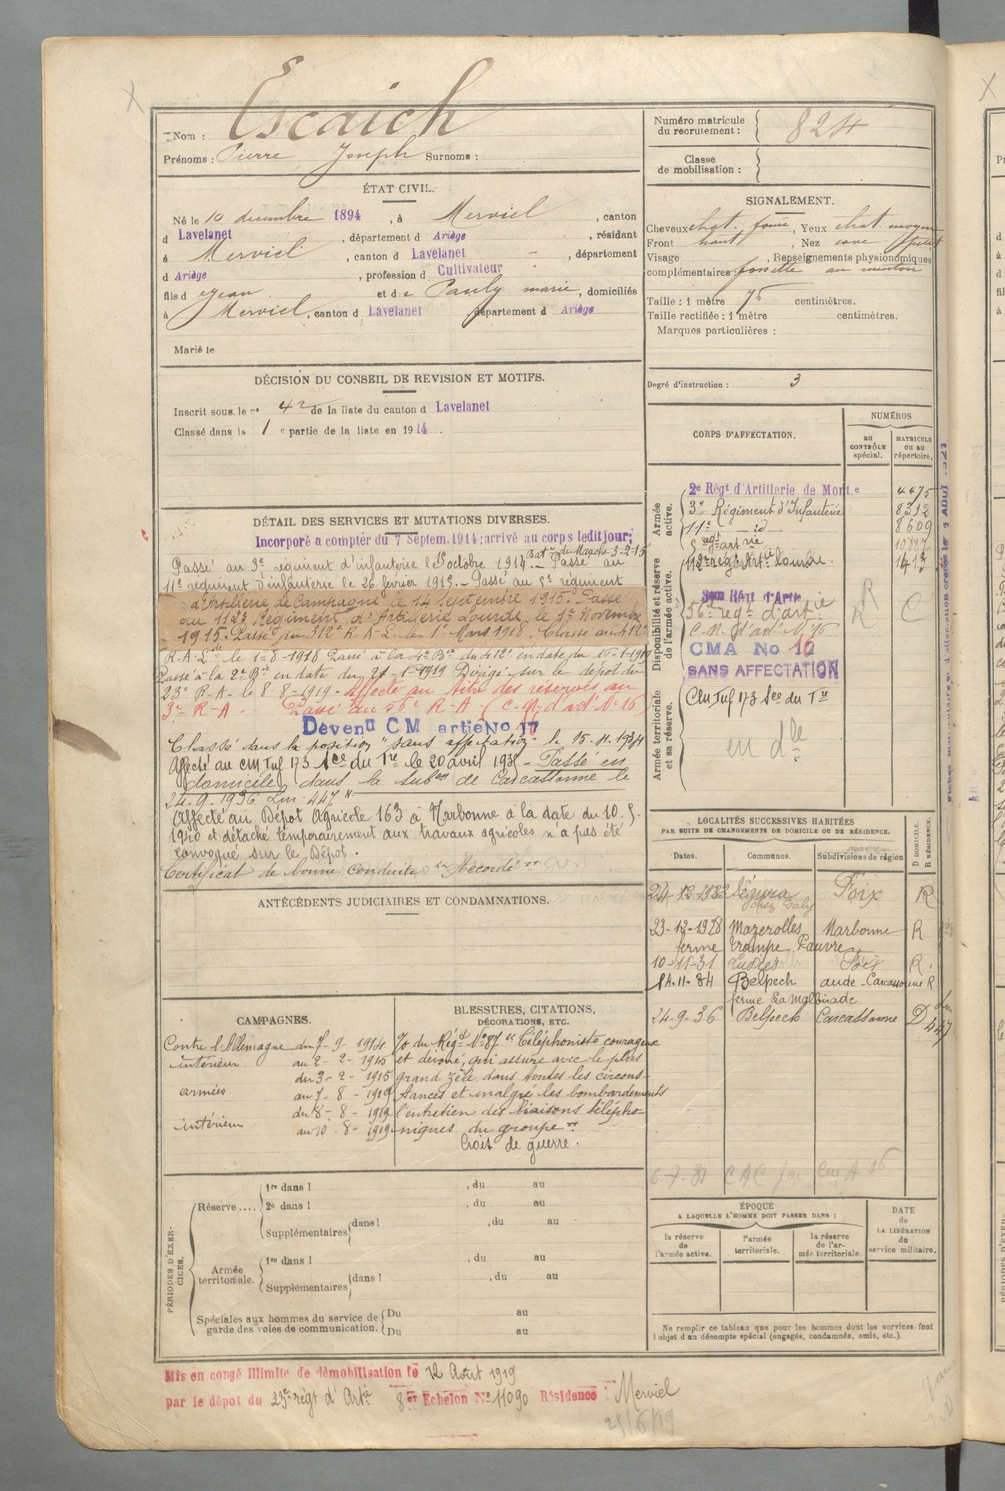 Nom : Escaich
Prénoms : Pierre Joseph Surnoms :
ÉTAT CIVIL.
Né le 10 décembre 1894, à Merviel, canton
d Lavelanet, département d Ariège, résidant
à Merviel, canton d Lavelanet, département
d Ariège, profession d Cultivateur
fils d Jean et de Pauly marie, domiciliés
à Merviel, canton d Lavelanet département d Ariège
Marié le
DÉCISION DU CONSEIL DE REVISION ET MOTIFS.
Inscrit sous le no 42 de la liste du canton d Lavelanet
Classé dans la 1 e partie de la liste en 1914.
DÉTAIL DES SERVICES ET MUTATIONS DIVERSES.
Incorporé à compter du 7 Septem. 1914; arrivé au corps ledit jour;
Bat on de Marche 3-2-15
Passé au 3e régiment d'infanterie le octobre 1914. Passé au
11e régiment d'infanterie le 26 février 1915. Passé au 5e régiment
d'Artillerie de Campagne le 14 Septembre 1915. Passé
au 112e Régiment d'Artillerie Lourde le 1er Novembre
1915. Passé au 312e R.A.L. le 1er Mars 1918. Classé au 412e
R.A.Lde le 1-8-1918 Passé à la 4e Bie du 412e en date du 10-1-1919
Passé à la 2e Bie en date du 21-1-1919 Dirigé sur le dépôt du
23e R.A. le 8-8-1919. Affecté au titre des réserves au
3e R-A. Passé au 56e R-A (C.M. d'art. No 16)
Devenu CM artie No 17
Classé dans la position "sans affectation" le 15-11-1934
Affecté au CM Tuf 173 Sce du Tre le 20 avril 1935. Passé en
domicile dans la subon de Carcassonne le
24-9-1936 Lm 447
Affecté au Dépôt Agricole 163 à Narbonne à la date du 10.5.
1940 et détaché temporairement aux travaux agricoles n'a pas été
convoqué sur le Dépôt.
Certificat de bonne conduite "Accordé"
ANTÉCÉDENTS JUDICIAIRES ET CONDAMNATIONS.
CAMPAGNES.
Contre l'Allemagne du 7-9-1914
intérieur au 2-2-1915
du 3-2-1915
armées au 7-8-1919
du 8-8-1919
intérieur au 10-8-1919
BLESSURES, CITATIONS,
DÉCORATIONS, ETC.
Jo du Régt No 87 "Téléphoniste courageux
et dévoué, qui assure avec le plus
grand zèle dans toutes les circons-
tances et malgré les bombardements
l'entretien des liaisons télépho-
niques du groupe".
Croix de guerre.
PÉRIODES D'EXERCICES.
Réserve .... 1re dans l , du au
2e dans l , du au
Supplémentaires dans l , du au
Armée territoriale. 1re dans l , du au
Supplémentaires dans l , du au
Spéciales aux hommes du service de garde des voies de communication. Du au
Du au
Mis en congé illimité de démobilisation le 12 Août 1919
par le dépôt du 23e régt d'Artie 8e Echelon No 11090 Résidence : Merviel
Numéro matricule
du recrutement : 824
Classe
de mobilisation :
SIGNALEMENT.
Cheveux chat. foncé, Yeux chat. moyen
Front haut, Nez cave petit
Visage , Renseignements physionomiques
complémentaires fossette au menton
Taille : 1 mètre 75 centimètres.
Taille rectifiée : 1 mètre centimètres.
Marques particulières :
Degré d'instruction : 3
CORPS D'AFFECTATION.
NUMÉROS
AU CONTRÔLE spécial.
MATRICULE OU AU répertoire.
Armée active.
2e Régt d'Artillerie de Mont.e 4475
3e Régiment d'Infanterie 8312
11e id 8609
5e régt artie
112e régt Artie lourde. 1413
Disponibilité et réserve de l'armée active.
56e régt d'artie
C.M. d'art. No 16
CMA No 12
SANS AFFECTATION
R
R
C
Armée territoriale et sa réserve.
CM Tuf 173 Sce du Tre
en dle
LOCALITÉS SUCCESSIVES HABITÉES
PAR SUITE DE CHANGEMENTS DE DOMICILE OU DE RÉSIDENCE.
Dates. Communes. Subdivisions de région D DOMICILE. R RÉSIDENCE.
24-12-1922 Foix R
23-12-1928 Mazerolles Narbonne R
ferme Trompe Pauvre
10-11-31 Foix R
14-11-34 Belpech aude-Carcassonne R
ferme La Malbirade
24-9-36 Belpech Carcassonne D
Lm 447
ÉPOQUE
A LAQUELLE L'HOMME DOIT PASSER DANS :
la réserve de l'armée active.
l'armée territoriale.
la réserve de l'armée territoriale.
DATE de LA LIBÉRATION du service militaire.
Ne remplir ce tableau que pour les hommes dont les services font
l'objet d'un décompte spécial (engagés, condamnés, omis, etc.).